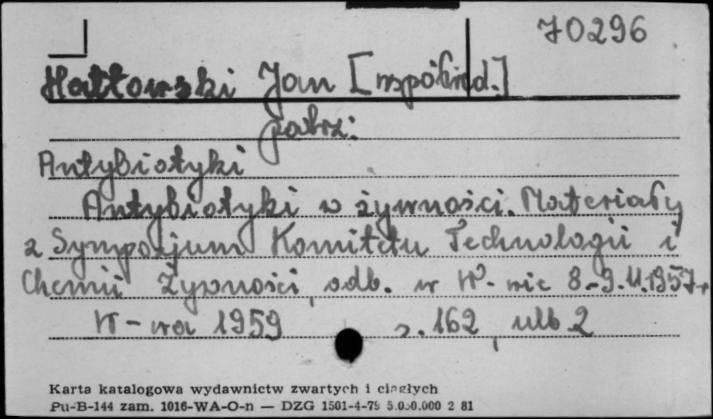 70296
Hattowski Jan [współred.]
patrz:
Antybiotyki
Antybiotyki w żywności. Materiały
z Sympozjum Komitetu Technologii i
Chemii Żywności, odb. w W-wie 8-9.11.1957 r.
W-wa 1959 s. 162, ulb. 2
Karta katalogowa wydawnictw zwartych i ciągłych
Pu-B-144 zam. 1016-WA-O-n — DZG 1501-4-79 5.000.000 2 81